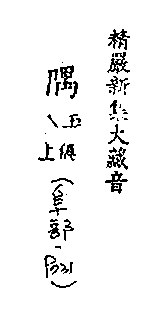 精嚴新集大藏音
隅
五俱
上
(阜部-p031)